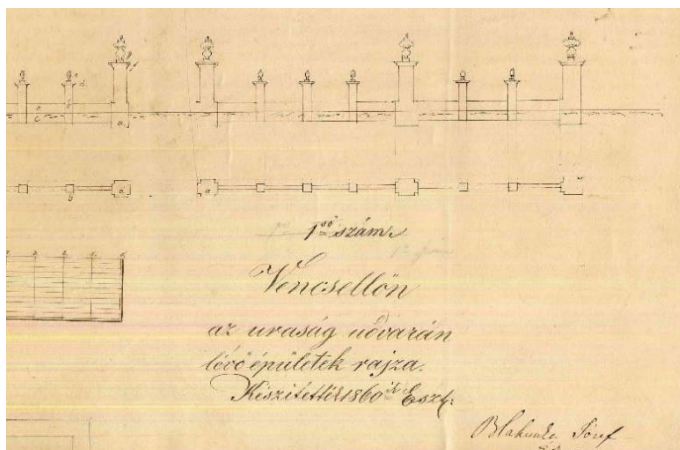 1ső szám.
Vencsellön
az uraság udvarán
lévő épületek rajza.
Készítettte 1860ik Eszt.
József